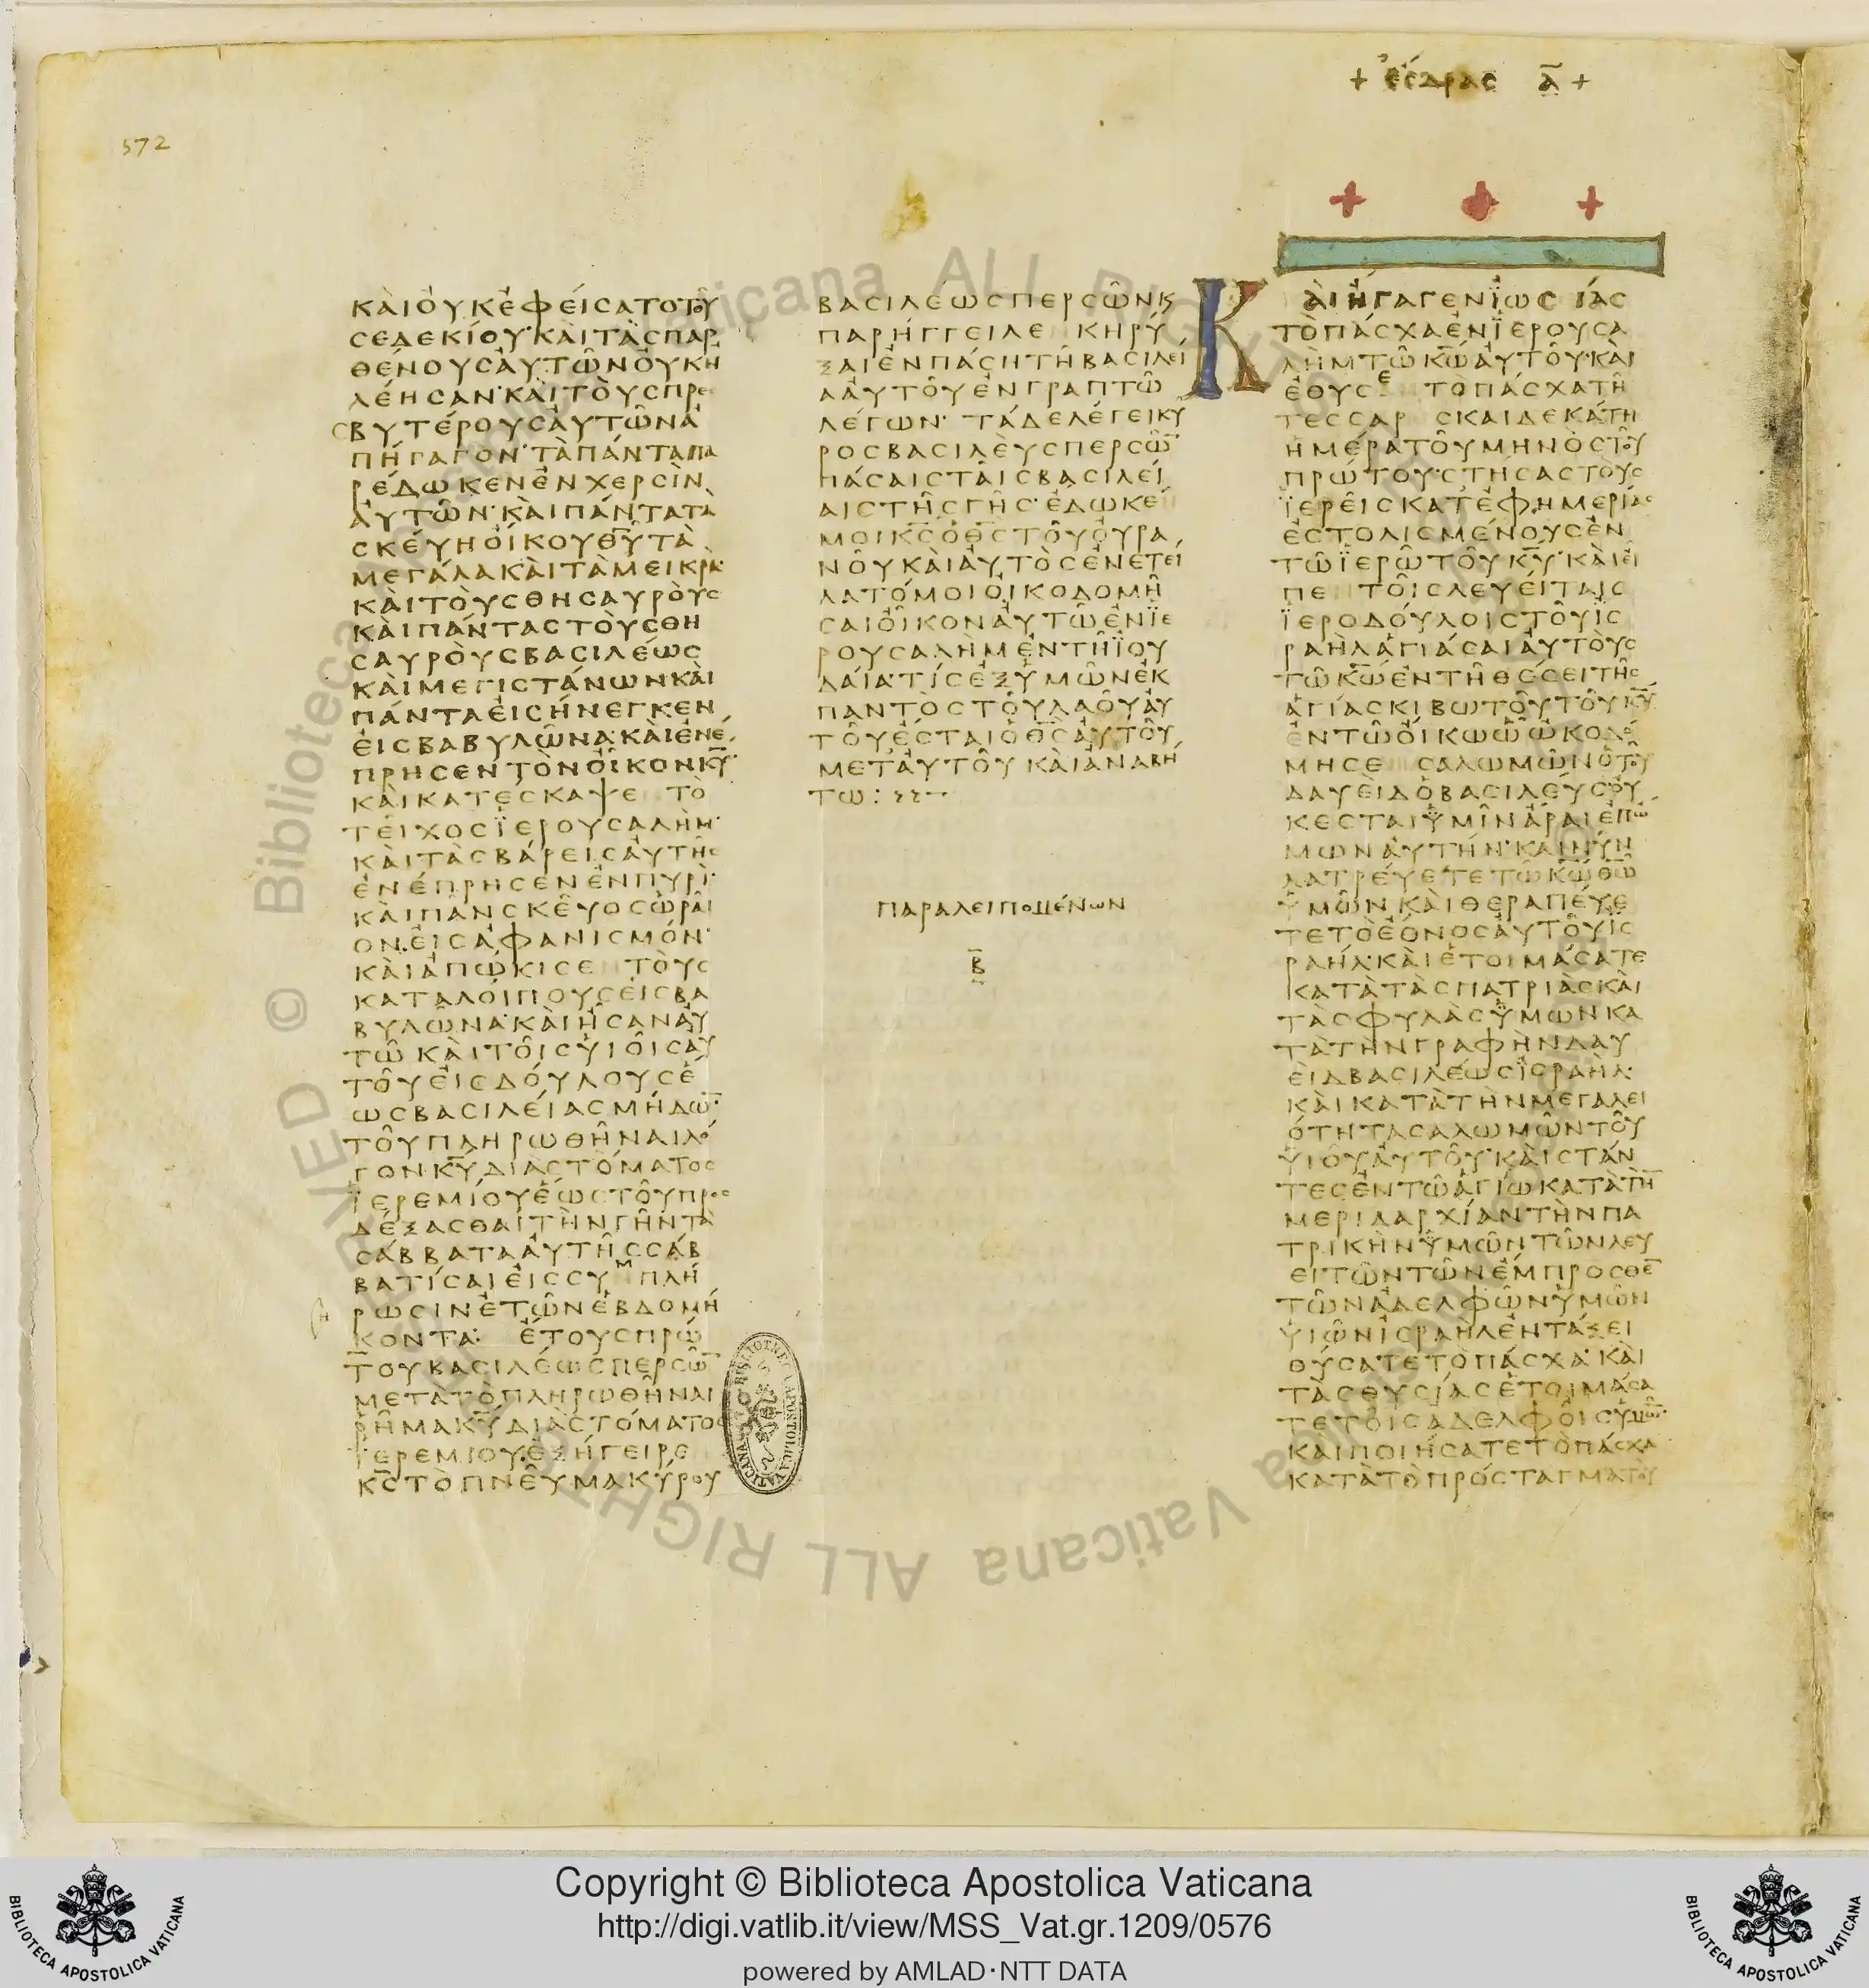 + ἔσδρας ᾱ +
572
ΚΑΙΟΥΚΕΦΕΙϹΑΤΟΤΟΥ
ϹΕΔΕΚΙΟΥ·ΚΑΙΤΑϹΠΑΡ
ΘΕΝΟΥϹΑΥΤΩΝΟΥΚΗ
ΛΕΗϹΑΝ·ΚΑΙΤΟΥϹΠΡΕ
ϹΒΥΤΕΡΟΥϹΑΥΤΩΝΑ
ΠΗΓΑΓΟΝ·ΤΑΠΑΝΤΑΠΑ
ΡΕΔΩΚΕΝΕΝΧΕΡϹΙΝ
ΑΥΤΩΝ·ΚΑΙΠΑΝΤΑΤΑ
ϹΚΕΥΗΟΙΚΟΥΘ̅Υ̅ΤΑ
ΜΕΓΑΛΑΚΑΙΤΑΜΕΙΚΡΑ·
ΚΑΙΤΟΥϹΘΗϹΑΥΡΟΥϹ
ΚΑΙΠΑΝΤΑϹΤΟΥϹΘΗ
ϹΑΥΡΟΥϹΒΑϹΙΛΕΩϹ
ΚΑΙΜΕΓΙϹΤΑΝΩΝΚΑΙ
ΠΑΝΤΑΕΙϹΗΝΕΓΚΕΝ
ΕΙϹΒΑΒΥΛΩΝΑ·ΚΑΙΕΝΕ
ΠΡΗϹΕΝΤΟΝΟΙΚΟΝΚ̅Υ̅·
ΚΑΙΚΑΤΕϹΚΑΨΕ ΤΟ
ΤΕΙΧΟϹΪΕΡΟΥϹΑΛΗΜ·
ΚΑΙΤΑϹΒΑΡΕΙϹΑΥΤΗϹ
ΕΝΕΠΡΗϹΕΝΕΝΠΥΡΙ·
ΚΑΙΠΑΝϹΚΕΥΟϹΩΡΑΙ
ΟΝ·ΕΙϹΑΦΑΝΙϹΜΟΝ·
ΚΑΙΑΠΩΚΙϹΕ ΤΟΥϹ
ΚΑΤΑΛΟΙΠΟΥϹΕΙϹΒΑ
ΒΥΛΩΝΑ·ΚΑΙΗϹΑΝΑΥ
ΤΩΚΑΙΤΟΙϹΥΙΟΙϹΑΥ
ΤΟΥΕΙϹΔΟΥΛΟΥϹΕ
ΩϹΒΑϹΙΛΕΙΑϹΜΗΔΩ̅·
ΤΟΥΠΛΗΡΩΘΗΝΑΙΛΟ
ΓΟΝ·Κ̅Υ̅ΔΙΑϹΤΟΜΑΤΟϹ
ΪΕΡΕΜΙΟΥΕΩϹΤΟΥΠΡΟϹ
ΔΕΞΑϹΘΑΙΤΗΝΓΗΝΤΑ
ϹΑΒΒΑΤΑΑΥΤΗϹϹΑΒ
ΒΑΤΙϹΑΙΕΙϹϹΥΜΠΛΗ
ΡΩϹΙΝΕΤΩΝΕΒΔΟΜΗ
ΚΟΝΤΑ: ΕΤΟΥϹΠΡΩ
ΤΟΥΒΑϹΙΛΕΩϹΠΕΡϹΩ̅
ΜΕΤΑΤΟΠΛΗΡΩΘΗΝΑΙ
ΡΗΜΑΚ̅Υ̅ΔΙΑϹΤΟΜΑΤΟϹ
ΪΕΡΕΜΙΟΥ·ΕΞΗΓΕΙΡΕ
Κ̅Ϲ̅ΤΟΠΝΕΥΜΑΚΥΡΟΥ
ΒΑϹΙΛΕΩϹΠΕΡϹΩΝΚϗ
ΠΑΡΗΓΓΕΙΛΕ ΚΗΡΥ
ΞΑΙΕΝΠΑϹΗΤΗΒΑϹΙΛΕΙ
ΑΑΥΤΟΥΕΝΓΡΑΠΤΩ
ΛΕΓΩΝ· ΤΑΔΕΛΕΓΕΙΚΥ
ΡΟϹΒΑϹΙΛΕΥϹΠΕΡϹΩ̅
ΠΑϹΑΙϹΤΑΙϹΒΑϹΙΛΕΙ
ΑΙϹΤΗϹΓΗϹ·ΕΔΩΚΕ
ΜΟΙΚ̅Ϲ̅ΟΘ̅Ϲ̅ΤΟΥΟΥΡΑ
ΝΟΥΚΑΙΑΥΤΟϹΕΝΕΤΕΙ
ΛΑΤΟΜΟΙΟΙΚΟΔΟΜΗ
ϹΑΙΟΙΚΟΝΑΥΤΩΕΝΪΕ
ΡΟΥϹΑΛΗΜΕΝΤΗΪΟΥ
ΔΑΙΑ·ΤΙϹΕΞΥΜΩΝΕΚ
ΠΑΝΤΟϹΤΟΥΛΑΟΥΑΥ
ΤΟΥΕϹΤΑΙΟΘ̅Ϲ̅ΑΥΤΟΥ
ΜΕΤΑΥΤΟΥΚΑΙΑΝΑΒΗ
ΤΩ:
ΠΑΡΑΛΕΙΠΟΜΕΝΩΝ
Β̅
ΚΑΙΗΓΑΓΕΝΪΩϹ ΙΑϹ
ΤΟΠΑϹΧΑΕΝΪΕΡΟΥϹΑ
ΛΗΜΤΩΚ̅Ω̅ΑΥΤΟΥ·ΚΑΙ
ΕΘΥϹΕ ΤΟΠΑϹΧΑΤΗ
ΤΕϹϹΑΡ ϹΚΑΙΔΕΚΑΤΗ
ΗΜΕΡΑΤΟΥΜΗΝΟϹΤΟΥ
ΠΡΩΤΟΥ·ϹΤΗϹΑϹΤΟΥϹ
ΪΕΡΕΙϹΚΑΤΕΦΗΜΕΡΙΑϹ
ΕϹΤΟΛΙϹΜΕΝΟΥϹΕΝ
ΤΩΪΕΡΩΤΟΥΚ̅Υ̅·ΚΑΙΕΙ
ΠΕ ΤΟΙϹΛΕΥΕΙΤΑΙϹ
ΪΕΡΟΔΟΥΛΟΙϹΤΟΥΙϹ
ΡΑΗΛΑΓΙΑϹΑΙΑΥΤΟΥϹ
ΤΩΚ̅Ω̅ΕΝΤΗΘΕϹΕΙΤΗϹ
ΑΓΙΑϹΚΙΒΩΤΟΥΤΟΥΚ̅Υ̅
ΕΝΤΩΟΙΚΩΩΩΚΟΔΟ
ΜΗϹΕ ϹΑΛΩΜΩΝΟΤΟΥ
ΔΑΥΕΙΔΟΒΑϹΙΛΕΥϹΟΥ
ΚΕϹΤΑΙΫΜΙΝΑΡΑΙΕΠΩ
ΜΩΝΑΥΤΗΝ·ΚΑΙΝΥΝ
ΛΑΤΡΕΥΕΤΕΤΩΚ̅Ω̅Θ̅Ω̅
ΫΜΩΝΚΑΙΘΕΡΑΠΕΥΕ
ΤΕΤΟΕΘΝΟϹΑΥΤΟΥΙϹ
ΡΑΗΛ·ΚΑΙΕΤΟΙΜΑϹΑΤΕ
ΚΑΤΑΤΑϹΠΑΤΡΙΑϹΚΑΙ
ΤΑϹΦΥΛΑϹΫΜΩΝΚΑ
ΤΑΤΗΝΓΡΑΦΗΝΔΑΥ
ΕΙΔΒΑϹΙΛΕΩϹΙϹΡΑΗΛ·
ΚΑΙΚΑΤΑΤΗΝΜΕΓΑΛΕΙ
ΟΤΗΤΑϹΑΛΩΜΩΝΤΟΥ
ΥΙΟΥΑΥΤΟΥ·ΚΑΙϹΤΑΝ
ΤΕϹΕΝΤΩΑΓΙΩΚΑΤΑΤΗ̅
ΜΕΡΙΔΑΡΧΙΑΝΤΗΝΠΑ
ΤΡΙΚΗΝΫΜΩΝΤΩΝΛΕΥ
ΕΙΤΩΝΤΩΝΕΜΠΡΟϹΘΕ̅
ΤΩΝΑΔΕΛΦΩΝΫΜΩΝ
ΥΙΩΝΙϹΡΑΗΛΕΝΤΑΞΕΙ
ΘΥϹΑΤΕΤΟΠΑϹΧΑ·ΚΑΙ
ΤΑϹΘΥϹΙΑϹΕΤΟΙΜΑϹΑ
ΤΕΤΟΙϹΑΔΕΛΦΟΙϹΥΜΩ̅·
ΚΑΙΠΟΙΗϹΑΤΕΤΟΠΑϹΧΑ
ΚΑΤΑΤΟΠΡΟϹΤΑΓΜΑΤΟΥ
Copyright © Biblioteca Apostolica Vaticana
http://digi.vatlib.it/view/MSS_Vat.gr.1209/0576
powered by AMLAD·NTT DATA
BIBLIOTECA APOSTOLICA VATICANA
BIBLIOTECA APOSTOLICA VATICANA